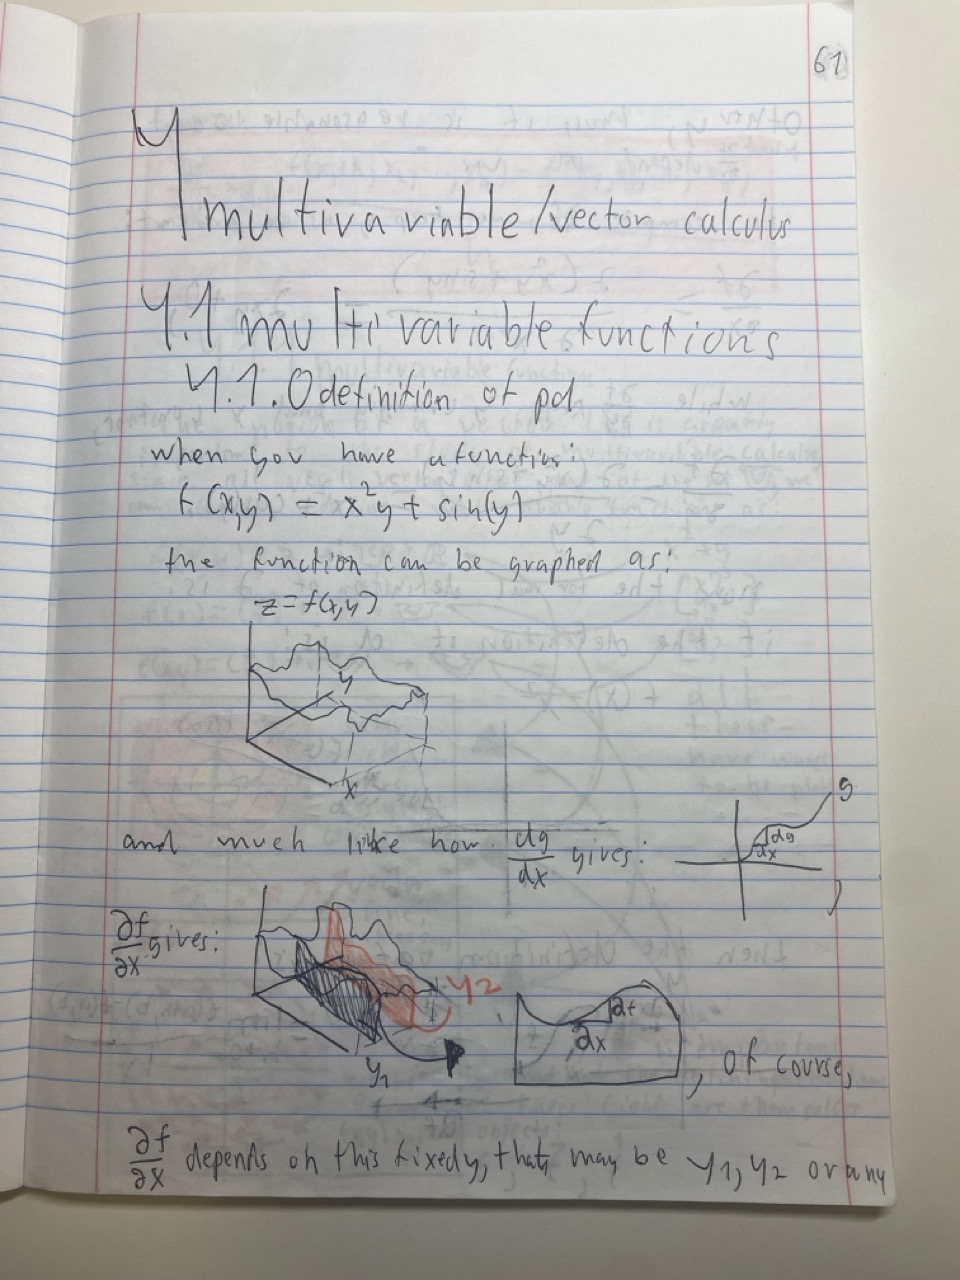 61
4
multivariable/vector calculus
4.1 multivariable functions
4.1.0 definition of pd
when you have a function:
f(x,y) = x²y + sin(y)
the function can be graphed as:
z=f(x,y)
y
x
and much like how dg/dx gives:
g
dg
dx
,
∂f/∂x gives:
y2
y1
∂f
∂x
, of course,
∂f/∂x depends on this fixed y, that may be y1, y2 or any